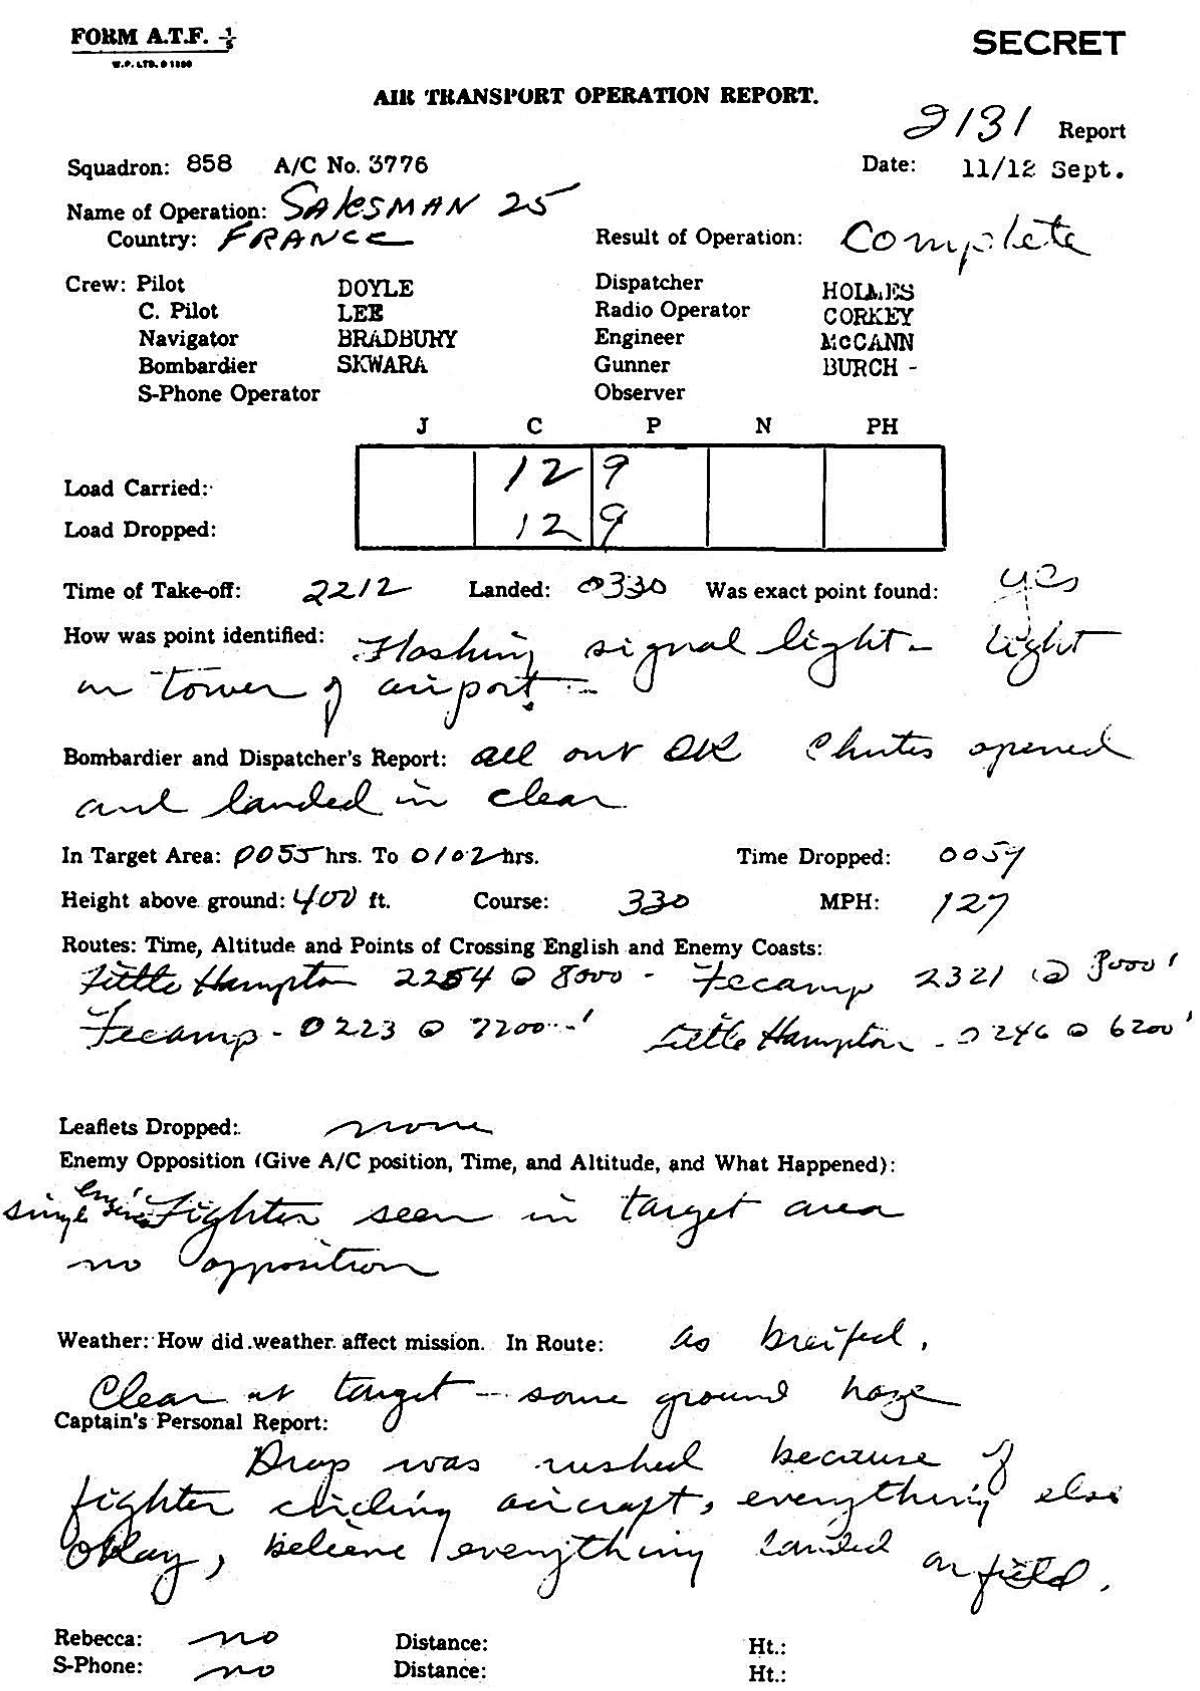 FORM A.T.F. 1/5
W.P. LTD. 01300
SECRET
AIR TRANSPORT OPERATION REPORT.
2131 Report
Squadron: 858 A/C No. 3776 Date: 11/12 Sept.
Name of Operation: SALESMAN 25
Country: FRANCE Result of Operation: Complete
Crew: Pilot DOYLE Dispatcher HOLMES
C. Pilot LEE Radio Operator CORKEY
Navigator BRADBURY Engineer McCANN
Bombardier SKWARA Gunner BURCH -
S-Phone Operator Observer
J C P N PH
Load Carried: 12 9
Load Dropped: 12 9
Time of Take-off: 2212 Landed: 0330 Was exact point found: yes
How was point identified: Flashing signal light - light
on tower of airport -
Bombardier and Dispatcher's Report: all out OK Chutes opened
and landed in clear
In Target Area: 0055 hrs. To 0102 hrs. Time Dropped: 0059
Height above ground: 400 ft. Course: 330 MPH: 127
Routes: Time, Altitude and Points of Crossing English and Enemy Coasts:
Little Hampton 2254 @ 8000 - Fecamp 2321 @ 8000'
Fecamp - 0223 @ 7200' Little Hampton - 0246 @ 6200'
Leaflets Dropped: none
Enemy Opposition (Give A/C position, Time, and Altitude, and What Happened):
single engine fighter seen in target area
no opposition
Weather: How did weather affect mission. In Route: as breifed.
Clear at target - some ground haze
Captain's Personal Report:
Drop was rushed because of
fighter circling aircraft, everything else
okay, believe everything landed on field.
Rebecca: no Distance: Ht.:
S-Phone: no Distance: Ht.: